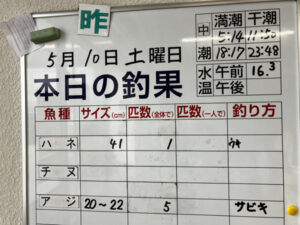 昨
5月10日土曜日
本日の釣果
中潮 満潮 干潮
5:14 11:50
18:17 23:48
水温 午前 16.3
午後
魚種 サイズ(cm) 匹数(全体で) 匹数(一人で) 釣り方
ハネ 41 1 ウキ
チヌ
アジ 20～22 5 サビキ